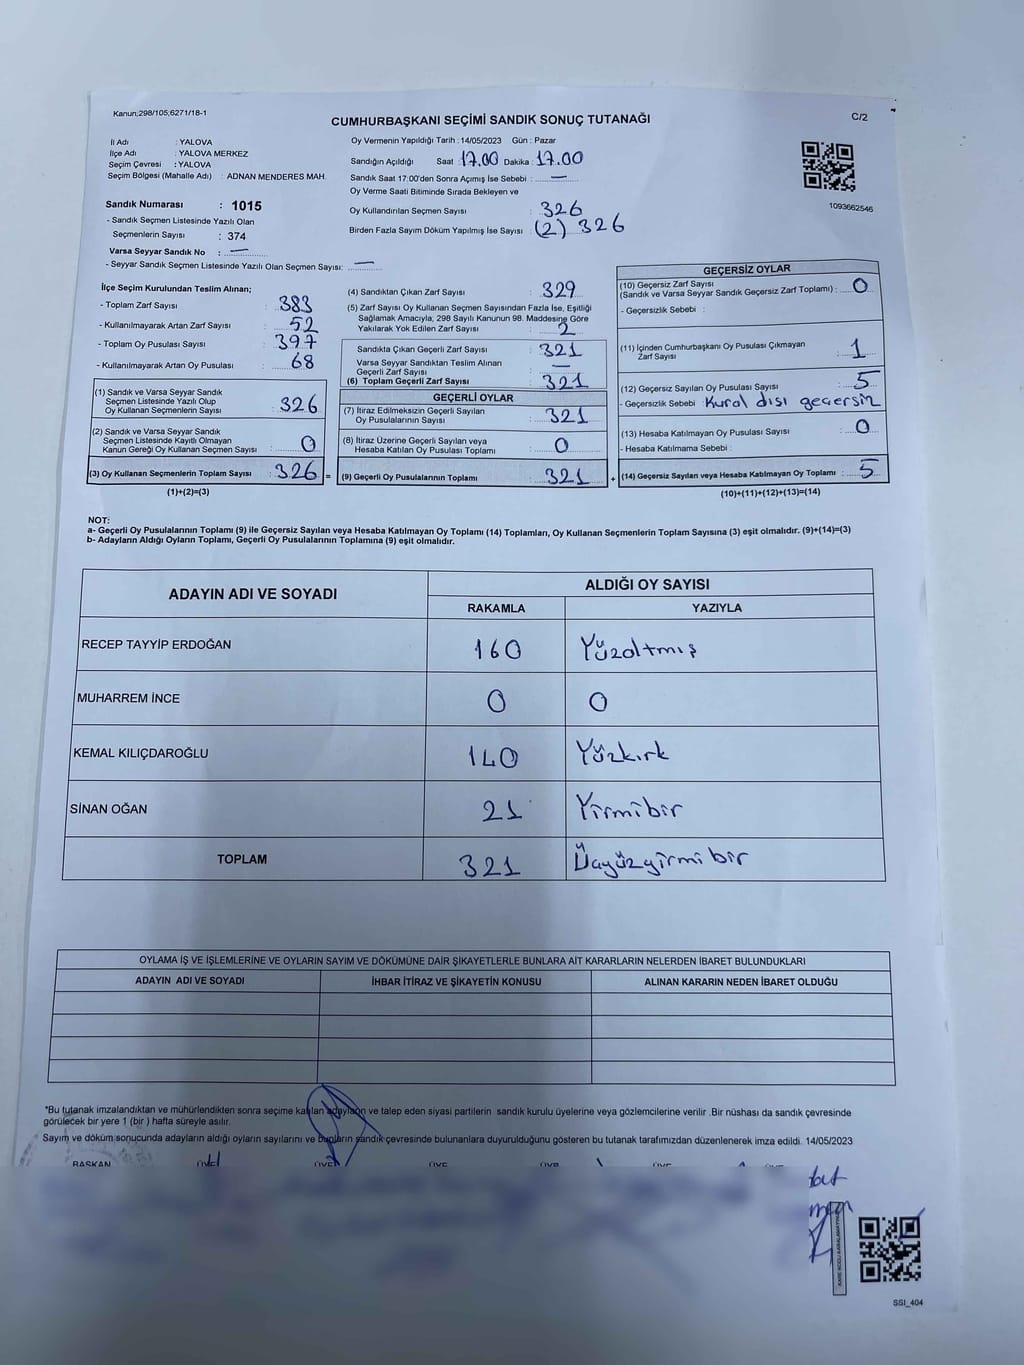 Kanun;298/105;6271/18-1
CUMHURBAŞKANI SEÇİMİ SANDIK SONUÇ TUTANAĞI
C/2
İl Adı : YALOVA
İlçe Adı : YALOVA MERKEZ
Seçim Çevresi : YALOVA
Seçim Bölgesi (Mahalle Adı) : ADNAN MENDERES MAH.
Oy Vermenin Yapıldığı Tarih : 14/05/2023 Gün : Pazar
Sandığın Açıldığı Saat : 17.00 Dakika : 17.00
Sandık Saat 17:00'den Sonra Açımış İse Sebebi : —
Oy Verme Saati Bitiminde Sırada Bekleyen ve
Oy Kullandırılan Seçmen Sayısı : 326
Birden Fazla Sayım Döküm Yapılmış İse Sayısı : (2) 326
1093662546
Sandık Numarası : 1015
- Sandık Seçmen Listesinde Yazılı Olan
Seçmenlerin Sayısı : 374
Varsa Seyyar Sandık No : —
- Seyyar Sandık Seçmen Listesinde Yazılı Olan Seçmen Sayısı: —
İlçe Seçim Kurulundan Teslim Alınan;
- Toplam Zarf Sayısı : 383
- Kullanılmayarak Artan Zarf Sayısı : 52
- Toplam Oy Pusulası Sayısı : 397
- Kullanılmayarak Artan Oy Pusulası : 68
(1) Sandık ve Varsa Seyyar Sandık
Seçmen Listesinde Yazılı Olup
Oy Kullanan Seçmenlerin Sayısı : 326
(2) Sandık ve Varsa Seyyar Sandık
Seçmen Listesinde Kayıtlı Olmayan
Kanun Gereği Oy Kullanan Seçmen Sayısı : 0
(3) Oy Kullanan Seçmenlerin Toplam Sayısı : 326 =
(1)+(2)=(3)
(4) Sandıktan Çıkan Zarf Sayısı : 329
(5) Zarf Sayısı Oy Kullanan Seçmen Sayısından Fazla İse, Eşitliği
Sağlamak Amacıyla, 298 Sayılı Kanunun 98. Maddesine Göre
Yakılarak Yok Edilen Zarf Sayısı : 2
Sandıkta Çıkan Geçerli Zarf Sayısı : 321
Varsa Seyyar Sandıktan Teslim Alınan
Geçerli Zarf Sayısı : —
(6) Toplam Geçerli Zarf Sayısı : 321
GEÇERLİ OYLAR
(7) İtiraz Edilmeksizin Geçerli Sayılan
Oy Pusulasının Sayısı : 321
(8) İtiraz Üzerine Geçerli Sayılan veya
Hesaba Katılan Oy Pusulası Toplamı : 0
(9) Geçerli Oy Pusulalarının Toplamı : 321 +
GEÇERSİZ OYLAR
(10) Geçersiz Zarf Sayısı
(Sandık ve Varsa Seyyar Sandık Geçersiz Zarf Toplamı) : 0
- Geçersizlik Sebebi :
(11) İçinden Cumhurbaşkanı Oy Pusulası Çıkmayan
Zarf Sayısı : 1
(12) Geçersiz Sayılan Oy Pusulası Sayısı : 5
- Geçersizlik Sebebi : Kural dısı geçersiz
(13) Hesaba Katılmayan Oy Pusulası Sayısı : 0
- Hesaba Katılmama Sebebi :
(14) Geçersiz Sayılan veya Hesaba Katılmayan Oy Toplamı : 5
(10)+(11)+(12)+(13)=(14)
NOT:
a- Geçerli Oy Pusulalarının Toplamı (9) ile Geçersiz Sayılan veya Hesaba Katılmayan Oy Toplamı (14) Toplamları, Oy Kullanan Seçmenlerin Toplam Sayısına (3) eşit olmalıdır. (9)+(14)=(3)
b- Adayların Aldığı Oyların Toplamı, Geçerli Oy Pusulalarının Toplamına (9) eşit olmalıdır.
ADAYIN ADI VE SOYADI
ALDIĞI OY SAYISI
RAKAMLA YAZIYLA
RECEP TAYYİP ERDOĞAN 160 Yüzaltmış
MUHARREM İNCE 0 0
KEMAL KILIÇDAROĞLU 140 Yüzkırk
SİNAN OĞAN 21 Yirmibir
TOPLAM 321 Üçyüzyirmi bir
OYLAMA İŞ VE İŞLEMLERİNE VE OYLARIN SAYIM VE DÖKÜMÜNE DAİR ŞİKAYETLERLE BUNLARA AİT KARARLARIN NELERDEN İBARET BULUNDUKLARI
ADAYIN ADI VE SOYADI İHBAR İTİRAZ VE ŞİKAYETİN KONUSU ALINAN KARARIN NEDEN İBARET OLDUĞU
*Bu tutanak imzalandıktan ve mühürlendikten sonra seçime katılan adayların ve talep eden siyasi partilerin sandık kurulu üyelerine veya gözlemcilerine verilir .Bir nüshası da sandık çevresinde
görülecek bir yere 1 (bir ) hafta süreyle asılır.
Sayım ve döküm sonucunda adayların aldığı oyların sayılarını ve bunların sandık çevresinde bulunanlara duyurulduğunu gösteren bu tutanak tarafımızdan düzenlenerek imza edildi. 14/05/2023
BAŞKAN ÜYE ÜYE ÜYE ÜYE ÜYE ÜYE
SSI_404